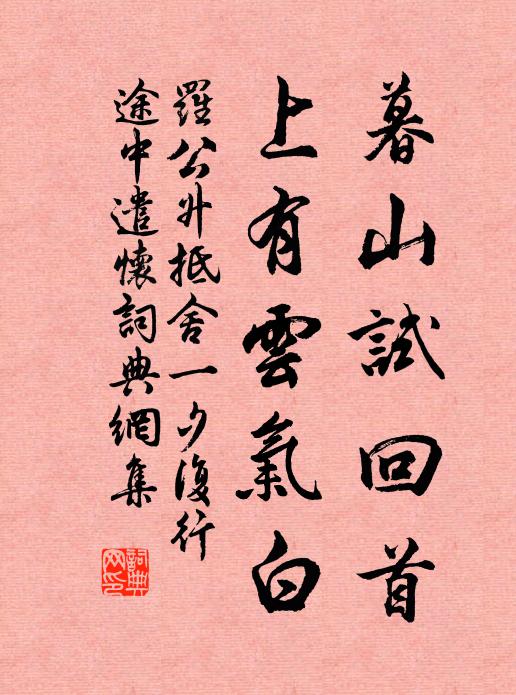 暮山試回首
上有雲氣白
羅公升抵舍一夕復行
途中遣懷詞典網集
詞典
网印